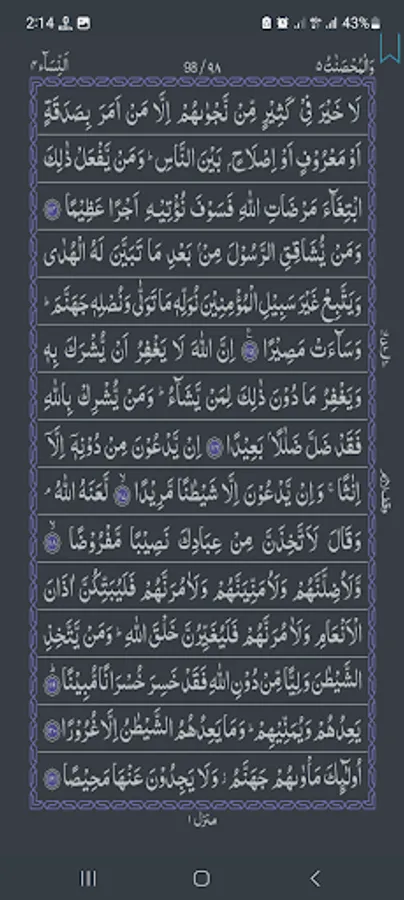 2:14 43%
وَالْمُحْصَنٰتُ ٥ 98 / ٩٨ اَلنِّسَآء ٤
لَا خَيْرَ فِيْ كَثِيْرٍ مِّنْ نَّجْوٰىهُمْ اِلَّا مَنْ اَمَرَ بِصَدَقَةٍ
اَوْ مَعْرُوْفٍ اَوْ اِصْلَاحٍۭ بَيْنَ النَّاسِ ؕ وَمَنْ يَّفْعَلْ ذٰلِكَ
ابْتِغَآءَ مَرْضَاتِ اللّٰهِ فَسَوْفَ نُؤْتِيْهِ اَجْرًا عَظِيْمًا ۝
وَمَنْ يُّشَاقِقِ الرَّسُوْلَ مِنْۢ بَعْدِ مَا تَبَيَّنَ لَهُ الْهُدٰى
وَيَتَّبِعْ غَيْرَ سَبِيْلِ الْمُؤْمِنِيْنَ نُوَلِّهٖ مَا تَوَلّٰى وَنُصْلِهٖ جَهَنَّمَ ؕ
وَسَآءَتْ مَصِيْرًا ۝ اِنَّ اللّٰهَ لَا يَغْفِرُ اَنْ يُّشْرَكَ بِهٖ
وَيَغْفِرُ مَا دُوْنَ ذٰلِكَ لِمَنْ يَّشَآءُ ؕ وَمَنْ يُّشْرِكْ بِاللّٰهِ
فَقَدْ ضَلَّ ضَلٰلًاۢ بَعِيْدًا ۝ اِنْ يَّدْعُوْنَ مِنْ دُوْنِهٖۤ اِلَّاۤ
اِنٰثًا ۚ وَاِنْ يَّدْعُوْنَ اِلَّا شَيْطٰنًا مَّرِيْدًا ۝ لَّعَنَهُ اللّٰهُ ۘ
وَقَالَ لَاَتَّخِذَنَّ مِنْ عِبَادِكَ نَصِيْبًا مَّفْرُوْضًا ۝
وَّلَاُضِلَّنَّهُمْ وَلَاُمَنِّيَنَّهُمْ وَلَاٰمُرَنَّهُمْ فَلَيُبَتِّكُنَّ اٰذَانَ
الْاَنْعَامِ وَلَاٰمُرَنَّهُمْ فَلَيُغَيِّرُنَّ خَلْقَ اللّٰهِ ؕ وَمَنْ يَّتَّخِذِ
الشَّيْطٰنَ وَلِيًّا مِّنْ دُوْنِ اللّٰهِ فَقَدْ خَسِرَ خُسْرَانًا مُّبِيْنًا ۝
يَعِدُهُمْ وَيُمَنِّيْهِمْ ؕ وَمَا يَعِدُهُمُ الشَّيْطٰنُ اِلَّا غُرُوْرًا ۝
اُولٰٓئِكَ مَاْوٰىهُمْ جَهَنَّمُ ؗ وَلَا يَجِدُوْنَ عَنْهَا مَحِيْصًا ۝
منزل ١